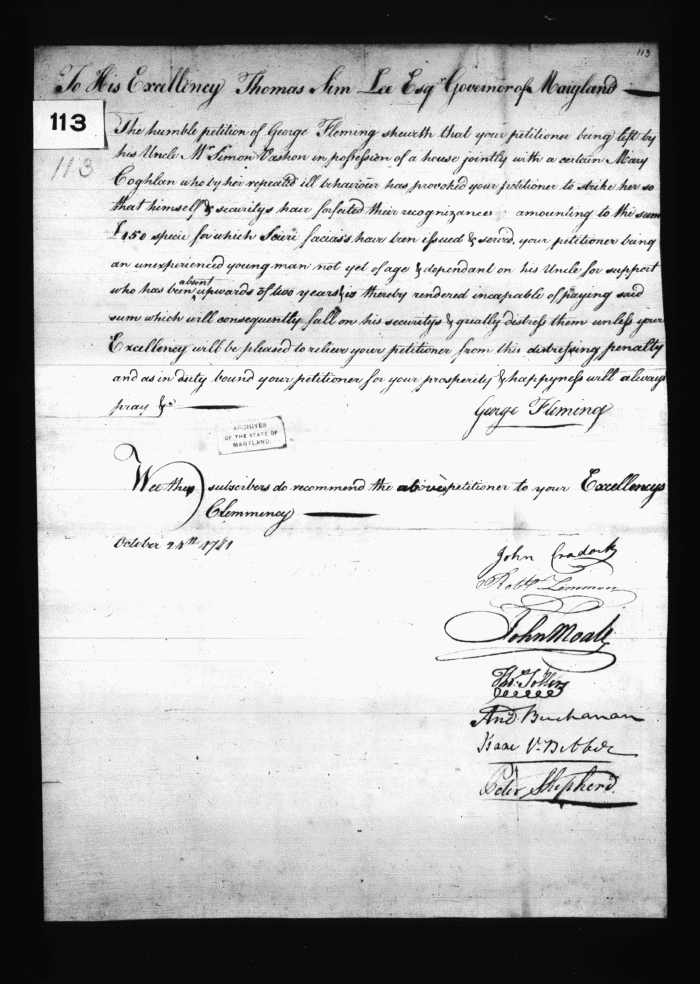 113
To His Excellency Thomas Sim Lee Esqr Governor of Maryland
113
113
The humble petition of George Fleming sheweth that your petitioner being left by
his Uncle Mr Simon Vashon in possession of a house jointly with a certain Mary
Coghlan who by her repeated ill behaviour has provoked your petitioner to strike her so
that himself & securitys have forfeited their recognizances amounting to the sum
£150 specie for which Scire facias's have been issued & served, your petitioner being
an unexperienced young man not yet of age & dependant on his Uncle for support
who has been absent upwards of two years & is thereby rendered incapable of paying said
sum which will consequently fall on his securitys & greatly distress them unless your
Excellency will be pleased to relieve your petitioner from this distressing penalty
and as in duty bound your petitioner for your prosperity & happyness will always
pray &c
George Fleming
ARCHIVES
OF THE STATE OF
MARYLAND
Wee the subscribers do recommend the above petitioner to your Excellencys
Clemmency
October 24th 1781
John Cradock
Robt Lemmon
John Moale
And. Buchanan
Isaac Vn Bibber
Peter Shepherd